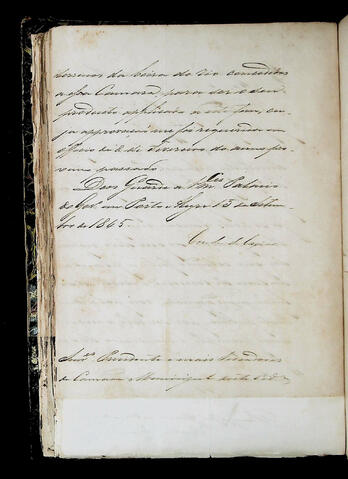 terrenos da beira do rio concedidos
a essa Camara, para ser o seu
producto applicado a este fim, cu-
ja approvação foi requerida em
officio de 2 de Fevereiro do anno pro-
ximo passado.
Deos Guarde a Vm.ces Palacio
do Gov.º em Porto Alegre 13 de
bro de 1845.
Conde de Caxias
Snr.es Presidente e mais Vereadores
da Camara Municipal desta Cid.e